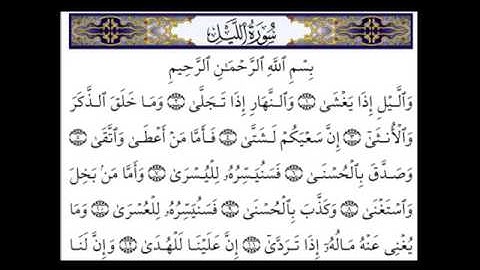 سُورَةُ اللَّيْلِ
بِسْمِ اللَّهِ الرَّحْمَٰنِ الرَّحِيمِ
وَٱلَّيْلِ إِذَا يَغْشَىٰ ١ وَٱلنَّهَارِ إِذَا تَجَلَّىٰ ٢ وَمَا خَلَقَ ٱلذَّكَرَ
وَٱلْأُنثَىٰٓ ٣ إِنَّ سَعْيَكُمْ لَشَتَّىٰ ٤ فَأَمَّا مَنْ أَعْطَىٰ وَٱتَّقَىٰ ٥
وَصَدَّقَ بِٱلْحُسْنَىٰ ٦ فَسَنُيَسِّرُهُۥ لِلْيُسْرَىٰ ٧ وَأَمَّا مَنۢ بَخِلَ
وَٱسْتَغْنَىٰ ٨ وَكَذَّبَ بِٱلْحُسْنَىٰ ٩ فَسَنُيَسِّرُهُۥ لِلْعُسْرَىٰ ١٠ وَمَا
يُغْنِى عَنْهُ مَالُهُۥٓ إِذَا تَرَدَّىٰٓ ١١ إِنَّ عَلَيْنَا لَلْهُدَىٰ ١٢ وَإِنَّ لَنَا